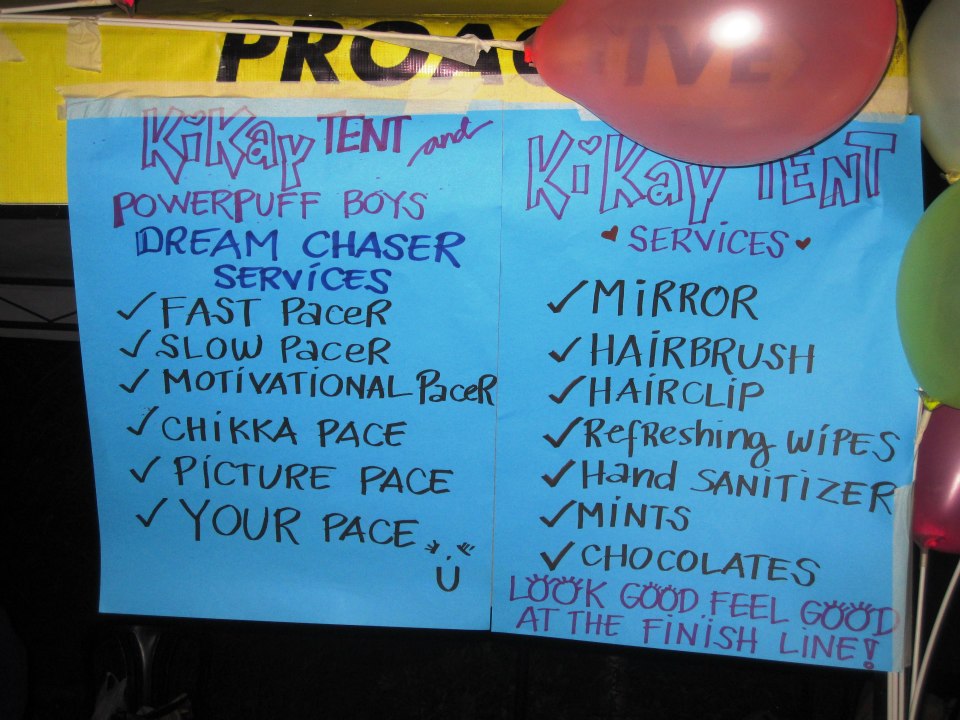 PROACTIVE
KiKay TENT and
POWERPUFF BOYS
DREAM CHASER
SERVICES
✓ FAST PaceR
✓ SLOW PaceR
✓ MOTIVATIONAL PaceR
✓ CHIKKA PACE
✓ PICTURE PACE
✓ YOUR PACE
KiKay TENT
♥ SERVICES ♥
✓ MIRROR
✓ HAIRBRUSH
✓ HAIRCLIP
✓ Refreshing WIPES
✓ Hand SANITIZER
✓ MINTS
✓ CHOCOLATES
LOOK GOOD FEEL GOOD
AT THE FINISH LINE!